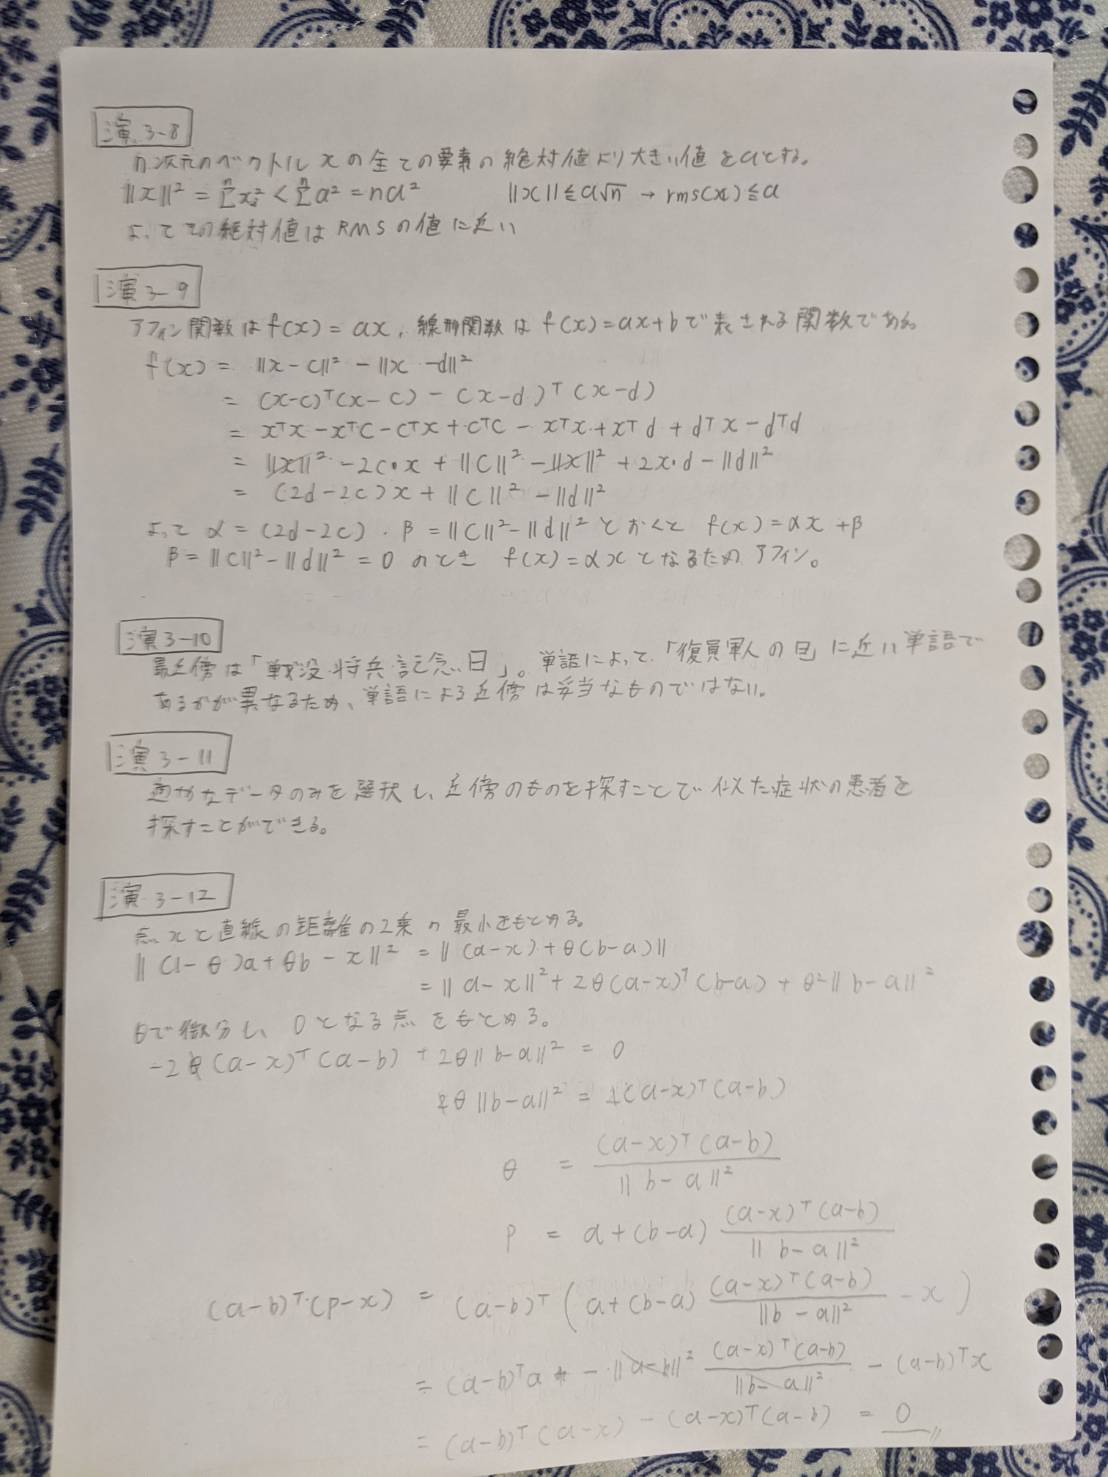 演 3-8
n次元のベクトル x の全ての要素の絶対値より大きい値をaとする。
||x||² = Σⁿxᵢ² < Σⁿa² = na²  ||x|| ≦ a√n → rms(x) ≦ a
よってその絶対値はRMSの値に近い
演 3-9
アフィン関数は f(x) = ax, 線形関数は f(x)=ax+b で表される関数である。
f(x) = ||x-c||² - ||x-d||²
= (x-c)ᵀ(x-c) - (x-d)ᵀ(x-d)
= xᵀx - xᵀc - cᵀx + cᵀc - xᵀx + xᵀd + dᵀx - dᵀd
= ||x||² - 2c・x + ||c||² - ||x||² + 2x・d - ||d||²
= (2d-2c)x + ||c||² - ||d||²
よって α = (2d-2c), β = ||c||² - ||d||² とおくと f(x) = αx + β
β = ||c||² - ||d||² = 0 のとき f(x) = αx となるため アフィン。
演 3-10
最近傍は「戦没将兵記念日」。単語によって「復員軍人の日」に近い単語で
あるかが異なるため、単語による近傍は妥当なものではない。
演 3-11
適切なデータのみを選択し、近傍のものを探すことで 似た症状の患者を
探すことができる。
演 3-12
点xと直線の距離の2乗の最小をもとめる。
||(1-θ)a + θb - x||² = ||(a-x) + θ(b-a)||
= ||a-x||² + 2θ(a-x)ᵀ(b-a) + θ²||b-a||²
θで微分し、0となる点をもとめる。
-2(a-x)ᵀ(a-b) + 2θ||b-a||² = 0
θ||b-a||² = (a-x)ᵀ(a-b)
θ = (a-x)ᵀ(a-b) / ||b-a||²
p = a + (b-a) (a-x)ᵀ(a-b) / ||b-a||²
(a-b)ᵀ・(p-x) = (a-b)ᵀ ( a + (b-a) (a-x)ᵀ(a-b) / ||b-a||² - x )
= (a-b)ᵀa - ||a-b||² (a-x)ᵀ(a-b) / ||b-a||² - (a-b)ᵀx
= (a-b)ᵀ(a-x) - (a-x)ᵀ(a-b) = 0